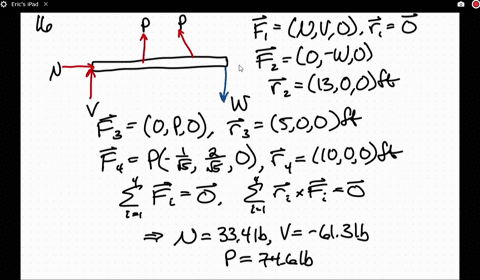 Eric's iPad
16
P P
N
V
W
F⃗₁ = (N,V,0), r⃗₁ = 0⃗
F⃗₂ = (0,-W,0)
r⃗₂ = (13,0,0)ft
F⃗₃ = (0,P,0), r⃗₃ = (5,0,0)ft
F⃗₄ = P(-1/√5, 2/√5, 0), r⃗₄ = (10,0,0)ft
∑⁴ᵢ₌₁ F⃗ᵢ = 0⃗, ∑⁴ᵢ₌₁ r⃗ᵢ × F⃗ᵢ = 0⃗
⇒ N = 33.4lb, V = -61.3lb
P = 74.6lb